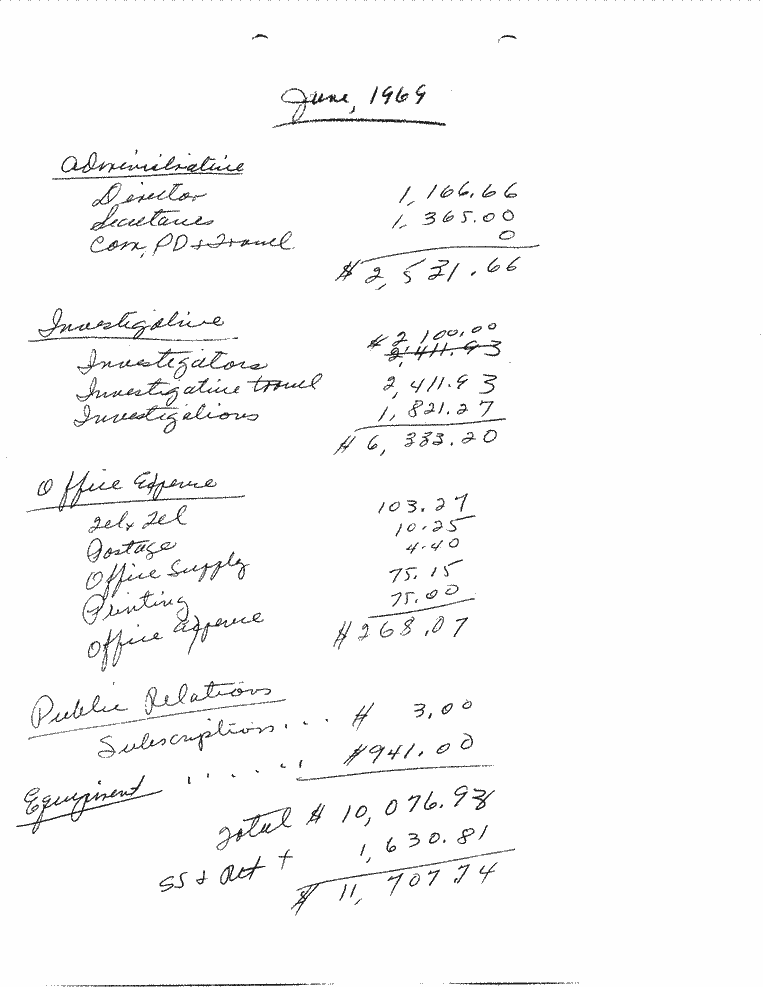 June, 1969
Administrative
Director 1,166.66
Secretaries 1,365.00
Com, PD + Travel 0
$2,531.66
Investigative
$2,100.00
Investigators 2,411.93
Investigative travel 2,411.93
Investigations 1,821.27
$6,333.20
Office Expense
Tel & Tel 103.27
Postage 10.25
Office Supply 4.40
Printing 75.15
Office Expense 75.00
$268.07
Public Relations
Subscriptions... $ 3.00
Equipment ..... $941.00
Total $10,076.93
SS + Ret + 1,630.81
$11,707.74